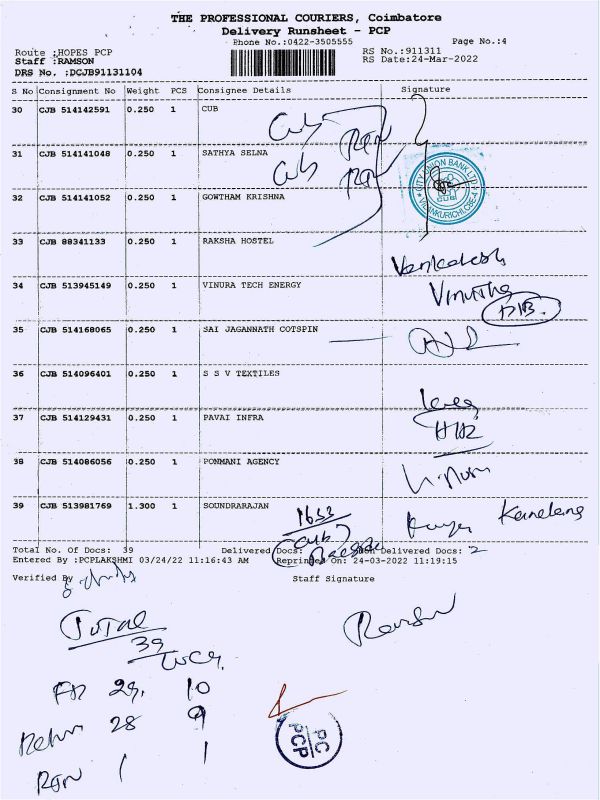 THE PROFESSIONAL COURIERS, Coimbatore
Delivery Runsheet - PCP
Phone No.:0422-3505555
Page No.:4
Route :HOPES PCP
RS No.:911311
Staff :RAMSON
RS Date:24-Mar-2022
DRS No. :DCJB91131104
S No Consignment No Weight PCS Consignee Details Signature
30 CJB 514142591 0.250 1 CUB
Cub
31 CJB 514141048 0.250 1 SATHYA SELNA
Cub
CITY UNION BANK LTD
32 CJB 514141052 0.250 1 GOWTHAM KRISHNA
33 CJB 88341133 0.250 1 RAKSHA HOSTEL
Venkatesh
34 CJB 513945149 0.250 1 VINURA TECH ENERGY
35 CJB 514168065 0.250 1 SAI JAGANNATH COTSPIN
36 CJB 514096401 0.250 1 S S V TEXTILES
37 CJB 514129431 0.250 1 PAVAI INFRA
38 CJB 514086056 0.250 1 PONMANI AGENCY
39 CJB 513981769 1.300 1 SOUNDRARAJAN
1653
Total No. Of Docs: 39 Delivered Docs: Non Delivered Docs: 2
Entered By :PCPLAKSHMI 03/24/22 11:16:43 AM Reprinted On: 24-03-2022 11:19:15
Verified By Staff Signature
Total
39
29 10
Return 28 9
1 1
PC
PCP